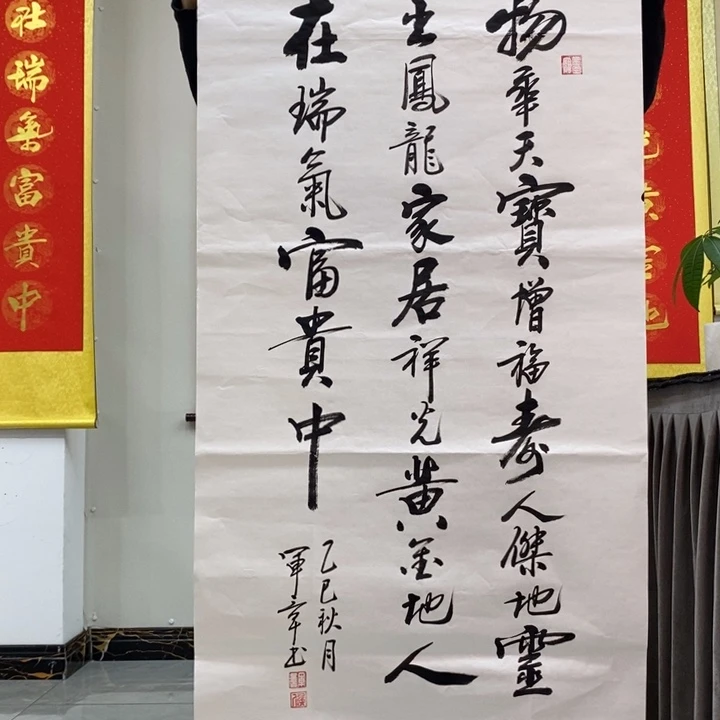 物華天寶增福寿人傑地靈
出鳳龍家居祥光黄金地人
在瑞氣富貴中
乙巳秋月
軍章书
瑞氣富貴中